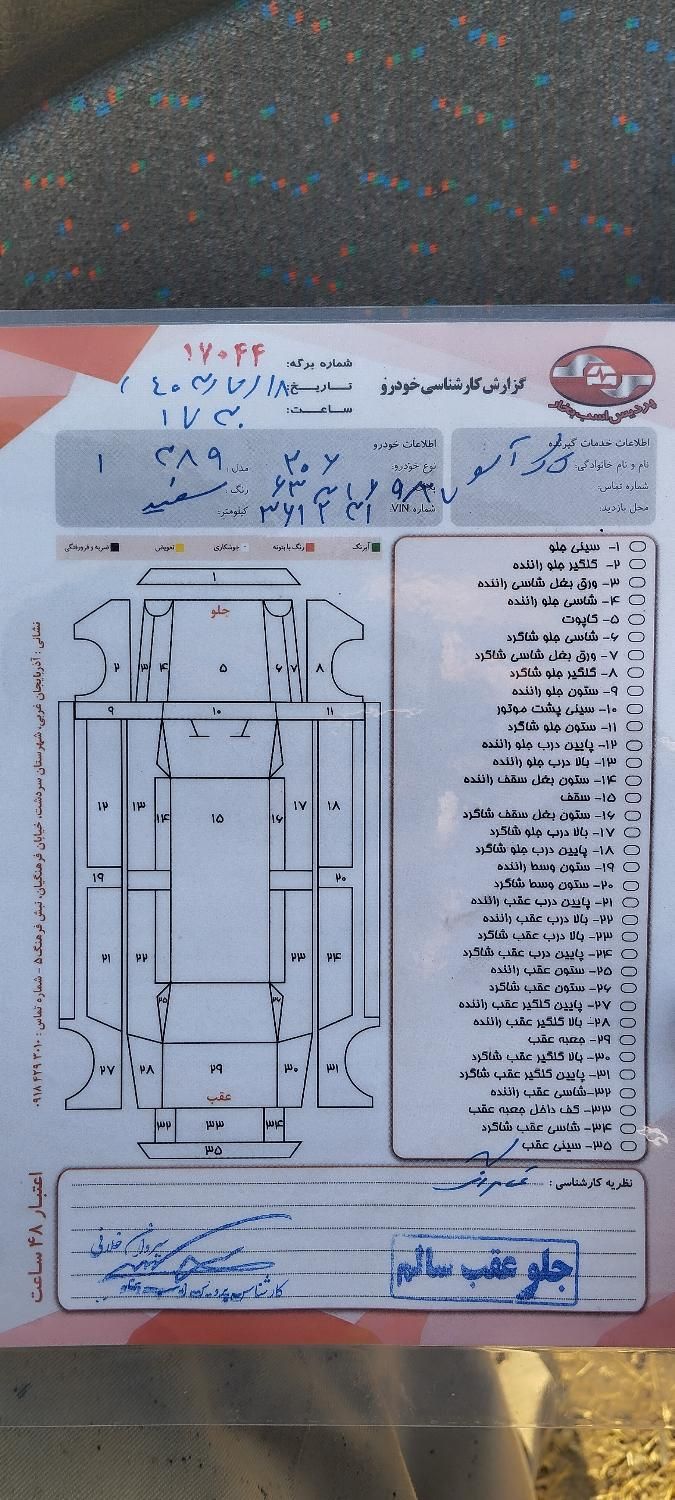 پردیس اسب بخار
گزارش کارشناسی خودرو
شماره برگه: ۱۷۰۴۴
تاریخ:
ساعت:
اطلاعات خدمات گیرنده
نام و نام خانوادگی:
شماره تماس:
محل بازدید:
اطلاعات خودرو
نوع خودرو: ۲۰۶
مدل:
رنگ: سفید
شماره VIN:
کیلومتر:
آبرنگ
رنگ با بتونه
جوشکاری
تعویض
ضربه و فرورفتگی
۱- سینی جلو
۲- گلگیر جلو راننده
۳- ورق بغل شاسی راننده
۴- شاسی جلو راننده
۵- کاپوت
۶- شاسی جلو شاگرد
۷- ورق بغل شاسی شاگرد
۸- گلگیر جلو شاگرد
۹- ستون جلو راننده
۱۰- سینی پشت موتور
۱۱- ستون جلو شاگرد
۱۲- پایین درب جلو راننده
۱۳- بالا درب جلو راننده
۱۴- ستون بغل سقف راننده
۱۵- سقف
۱۶- ستون بغل سقف شاگرد
۱۷- بالا درب جلو شاگرد
۱۸- پایین درب جلو شاگرد
۱۹- ستون وسط راننده
۲۰- ستون وسط شاگرد
۲۱- پایین درب عقب راننده
۲۲- بالا درب عقب راننده
۲۳- بالا درب عقب شاگرد
۲۴- پایین درب عقب شاگرد
۲۵- ستون عقب راننده
۲۶- ستون عقب شاگرد
۲۷- پایین گلگیر عقب راننده
۲۸- بالا گلگیر عقب راننده
۲۹- جعبه عقب
۳۰- بالا گلگیر عقب شاگرد
۳۱- پایین گلگیر عقب شاگرد
۳۲- شاسی عقب راننده
۳۳- کف داخل جعبه عقب
۳۴- شاسی عقب شاگرد
۳۵- سینی عقب
۱
جلو
۲ ۳ ۴ ۵ ۶ ۷ ۸
۹ ۱۰ ۱۱
۱۲ ۱۳ ۱۴ ۱۵ ۱۶ ۱۷ ۱۸
۱۹ ۲۰
۲۱ ۲۲ ۲۳ ۲۴
۲۵ ۲۶
۲۷ ۲۸ ۲۹ ۳۰ ۳۱
عقب
۳۲ ۳۳ ۳۴
۳۵
نشانی: آذربایجان غربی، شهرستان سردشت، خیابان فرهنگیان، نبش فرهنگ ۵ - شماره تماس: ۰۹۱۸ ۴۲۹ ۳۰۱۰
اعتبار ۴۸ ساعت
نظریه کارشناسی:
جلو عقب سالم